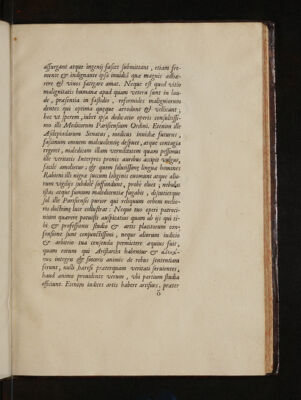 assurgant atque ingenij fasces submittant, etiam fre-
mente & indignante ipsa inuidia qua magnis adhæ-
rere & vinos fatigare amat. Neque est quod vitio
malignitatis humanæ apud quam vetera sunt in lau-
de, præsentia in fastidio, reformides malignorum
dentes qui optima quæque arrodunt & vellicant,
hoc vt sperem, iubet ipsa dedicatio operis consultissi-
mo illi Medicorum Parisiensium Ordini. Etenim ille
Asclepiadarum Senatus, medicus inuidiæ futurus,
facinum omnem maleuolentiæ desuet, atque contagia
reprimet, maledicam illam vermilitatem quam pessimus
ille veritatis Interpres pronis auribus accipit vulgus,
facile amolietur; & quem sidissima lingua homines
Rabioni illi nigræ succum loliginis euomunt atque alio-
rum vigilijs subdolè suffundunt, probè eluet; nebulas
istas atque fumum maledicentiæ fugabit, dissipabitque
sol ille Parisiensis purior qui reliquum orbem medi-
cis doctrina luce collustrat: Neque tuo operi patroci-
nium quærere potuisti auspicatius quam ab ijs qui ti-
bi & professionis studio & artis plantarum con-
sensione sunt coniunctissimi, neque aliorum iudicio
& arbitrio tua censenda permittere æquius fuit,
quam eorum qui Aristarchi habentur &
nus integro & sincero animi de rebus sententiam
ferunt, nulli hæresi præterquam veritati seruientes,
haud animo prouidente verum, vbi partium studia
officiunt. Etenim iudices artis habere artifices, præter